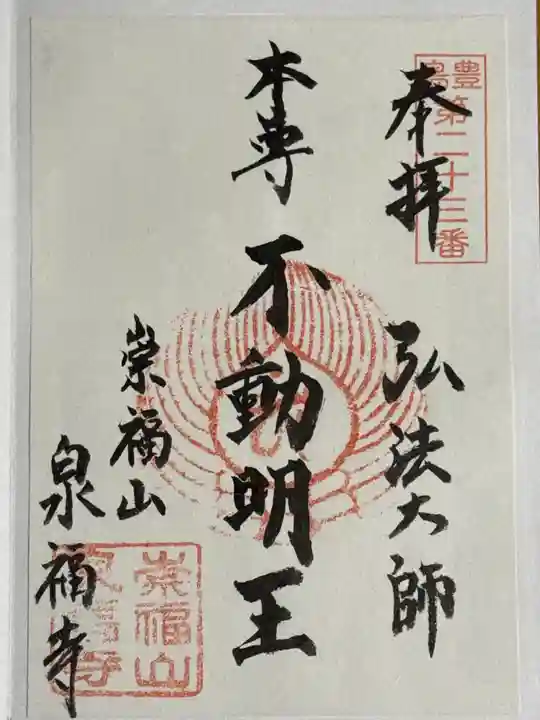 豊島
第二十三番
奉拝
弘法大師
本尊
不動明王
崇福山
泉福寺
崇福山
泉福寺